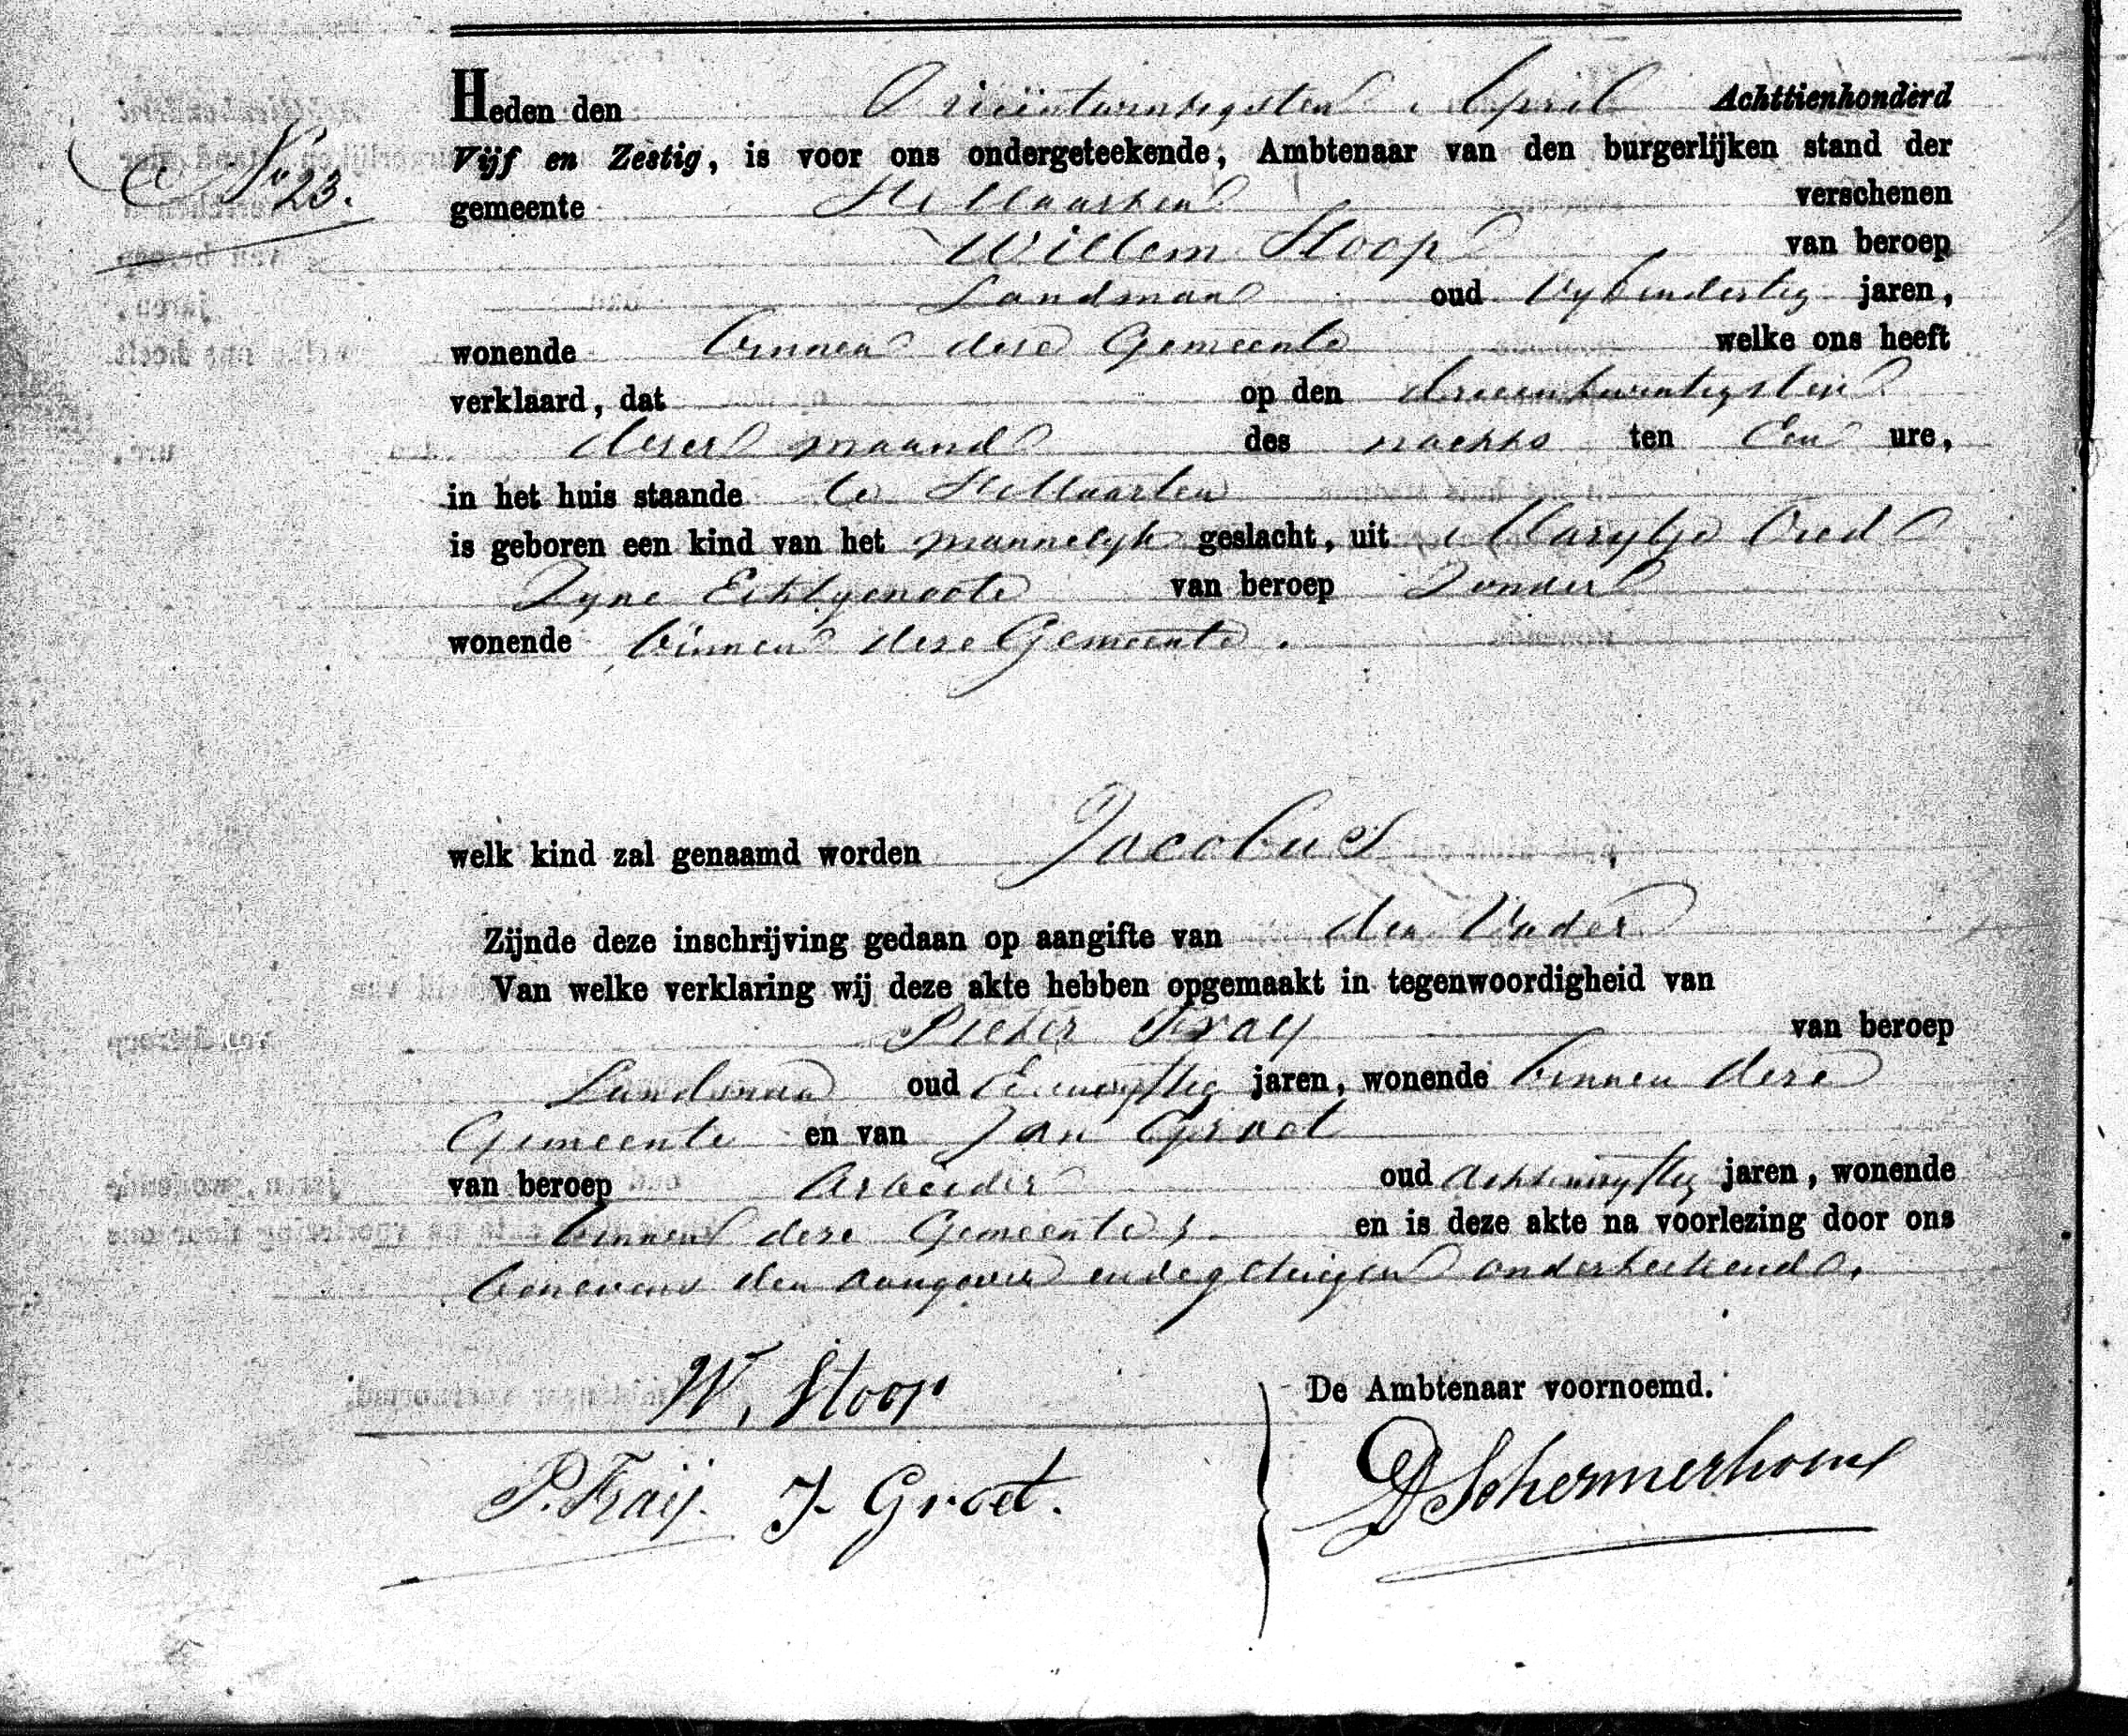 Heden den Drieëntwintigsten April Achttienhonderd
No 23.
Vijf en Zestig, is voor ons ondergeteekende, Ambtenaar van den burgerlijken stand der
gemeente St Maarten verschenen
Willem Stoop van beroep
Landman oud Vyfendertig jaren,
wonende binnen deze Gemeente welke ons heeft
verklaard, dat op den drieentwintigsten
dezer maand des nachts ten Een ure,
in het huis staande te St Maarten
is geboren een kind van het mannelyk geslacht, uit Marytje
Zyne Echtgenoote van beroep Zonder
wonende binnen deze Gemeente.
welk kind zal genaamd worden Jacobus
Zijnde deze inschrijving gedaan op aangifte van den Vader
Van welke verklaring wij deze akte hebben opgemaakt in tegenwoordigheid van
Pieter Fraij van beroep
Landman oud jaren, wonende binnen deze
Gemeente en van Jan Groet
van beroep Arbeider oud Achtenvyftig jaren, wonende
binnen deze Gemeente, en is deze akte na voorlezing door ons
benevens den aangever en de getuigen onderteekend.
W. Stoop
De Ambtenaar voornoemd.
P. Fraij. J. Groet.
D Schermerhorn